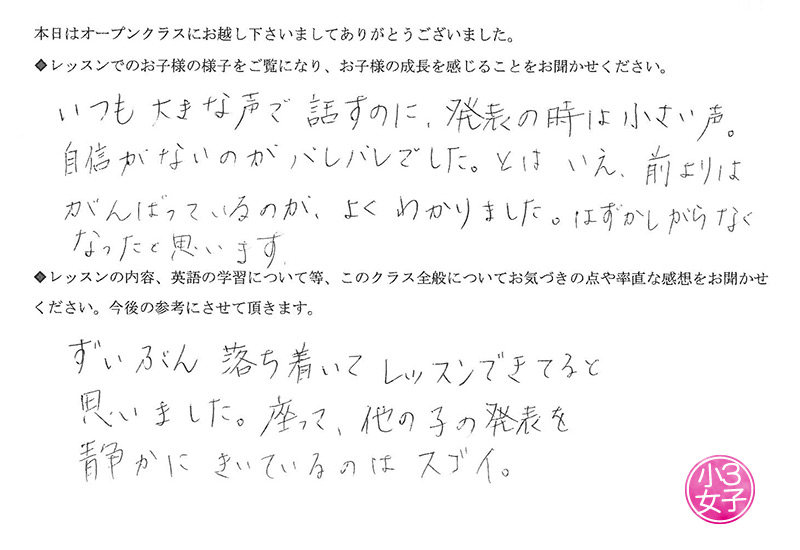 本日はオープンクラスにお越し下さいましてありがとうございました。
◆レッスンでのお子様の様子をご覧になり、お子様の成長を感じることをお聞かせください。
いつも大きな声で話すのに、発表の時は小さい声。
自信がないのがバレバレでした。とはいえ、前よりは
がんばっているのが、よくわかりました。はずかしがらなく
なったと思います。
◆レッスンの内容、英語の学習について等、このクラス全般についてお気づきの点や率直な感想をお聞かせ
ください。今後の参考にさせて頂きます。
ずいぶん落ち着いてレッスンできてると
思いました。座って、他の子の発表を
静かにきいているのはスゴイ。
小3
女子